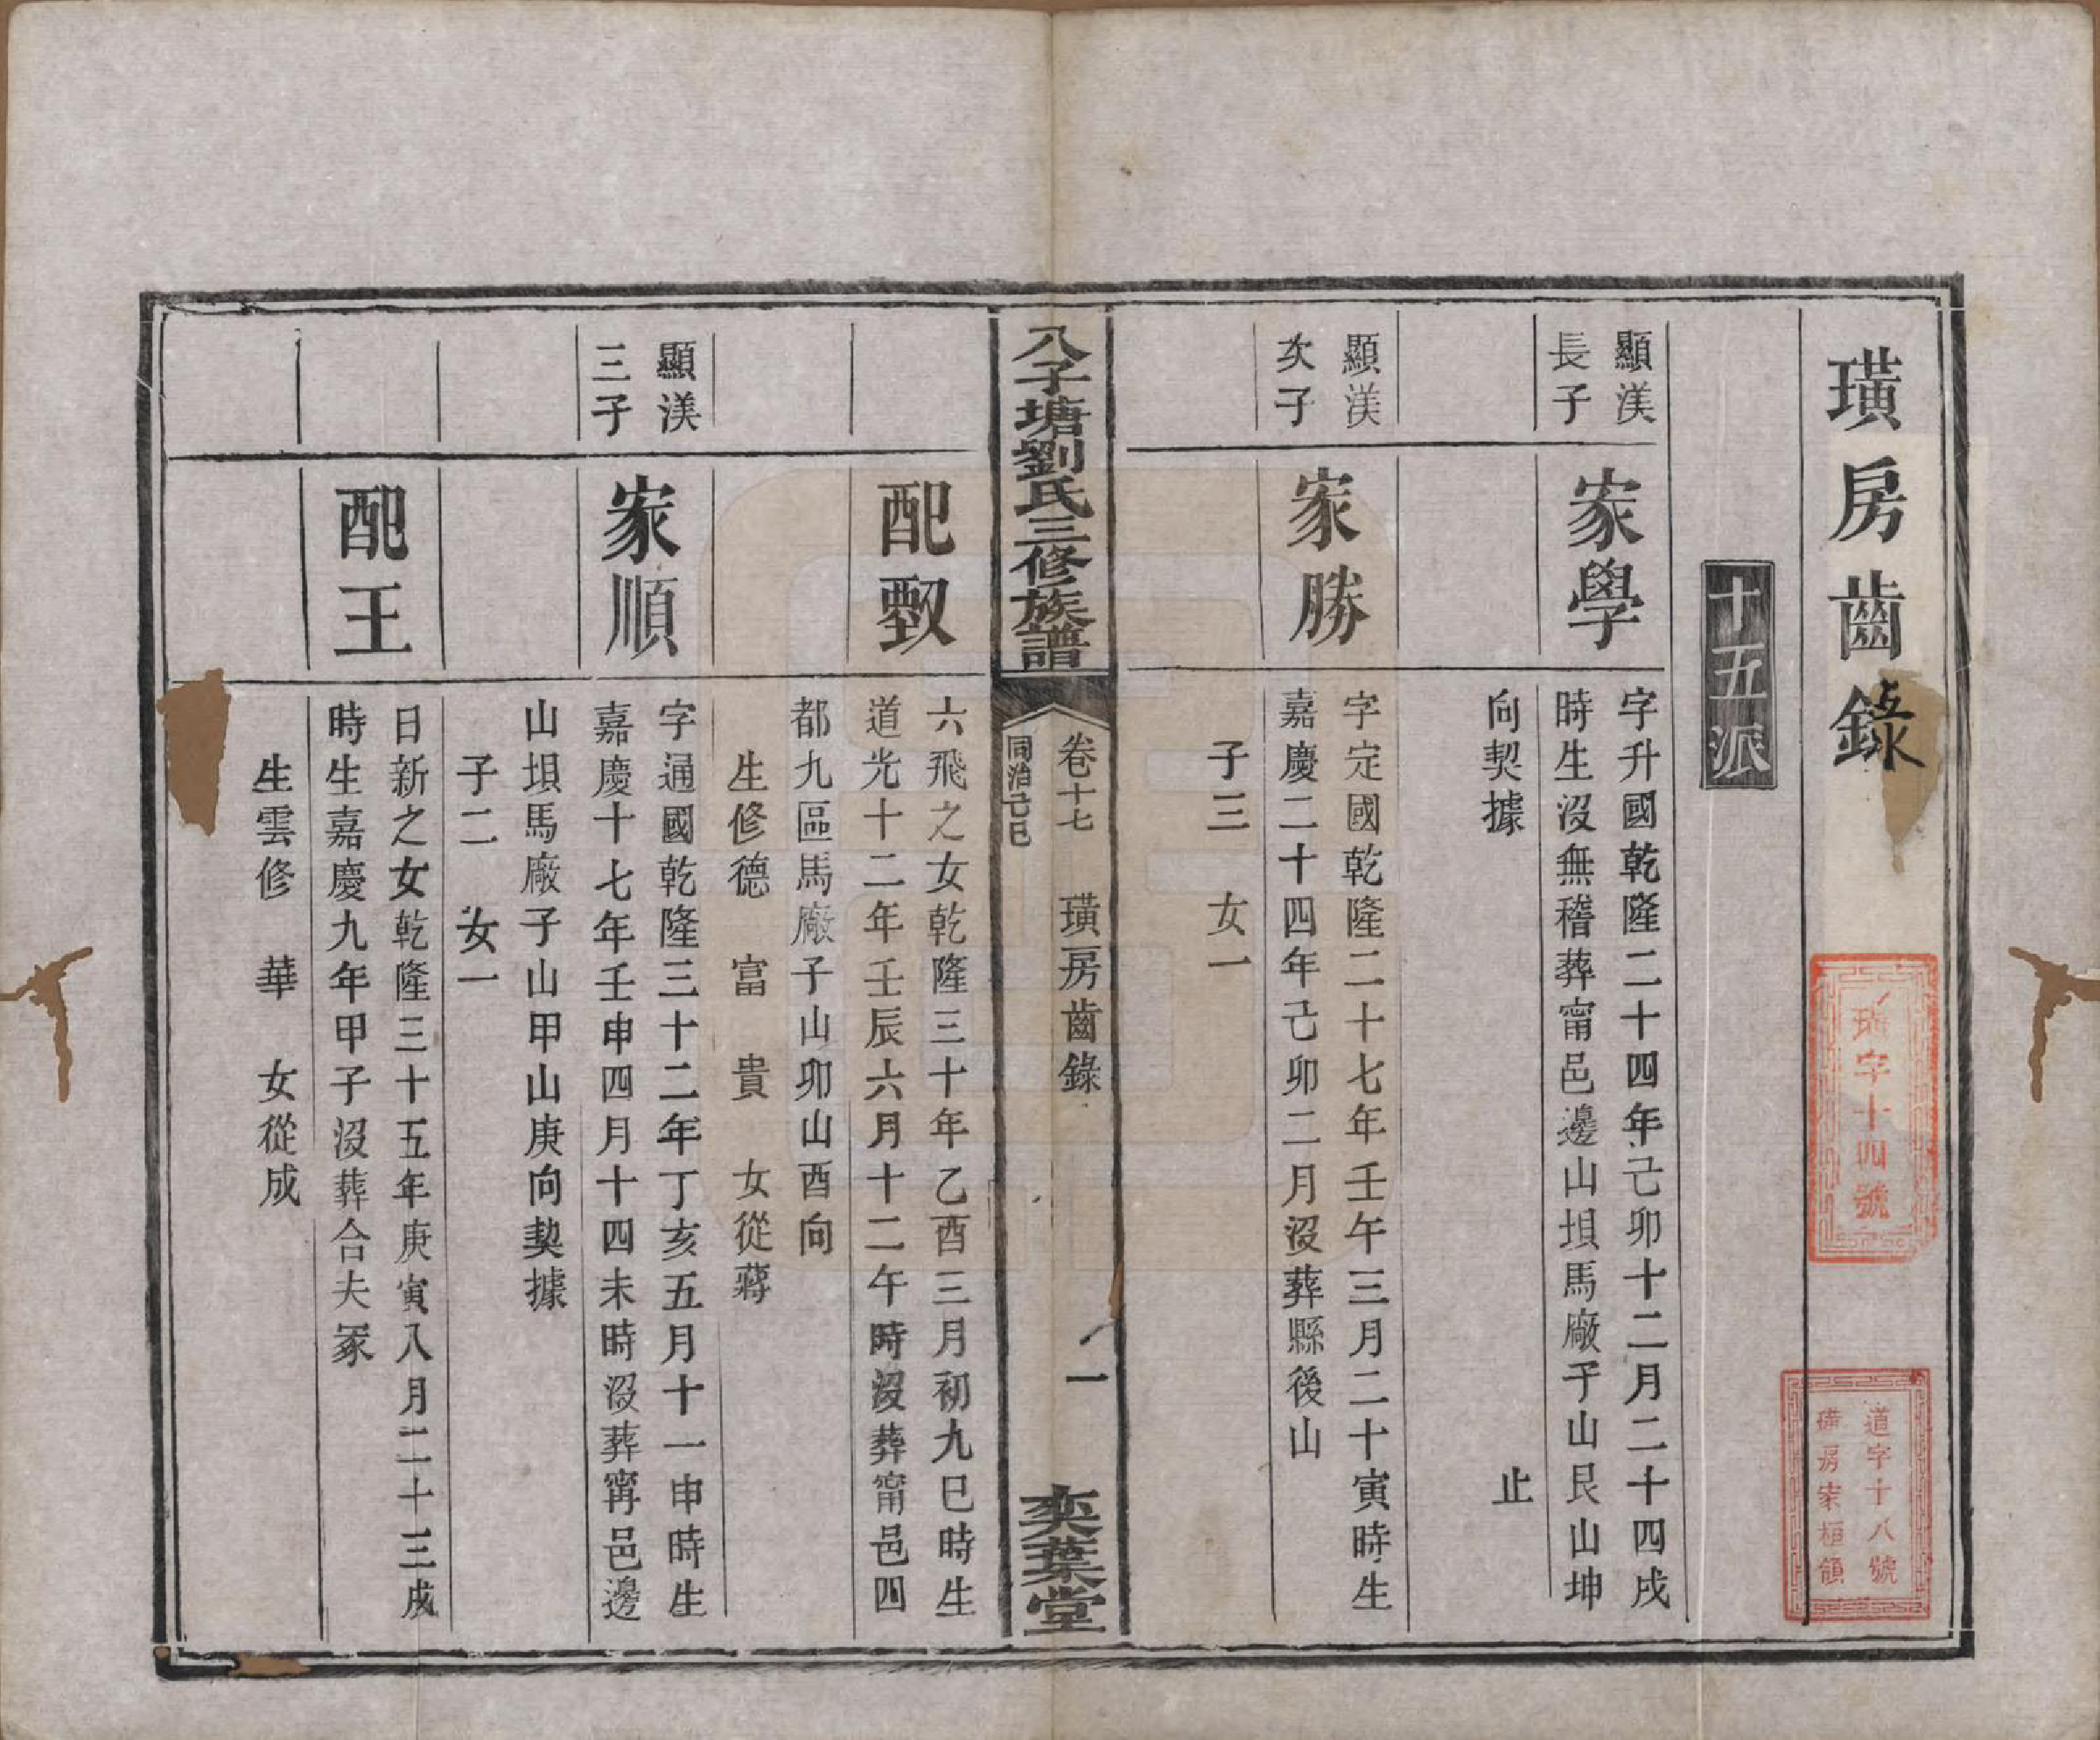 璜房齒錄
瑞字十四號
道字十八號
璜房家桓領
十五派
顯渼
長子
家學
字升國乾隆二十四年己卯十二月二十四戌
時生沒無稽葬甯邑邊山垻馬廠子山艮山坤
向契據 止
顯渼
次子
家勝
字定國乾隆二十七年壬午三月二十寅時生
嘉慶二十四年己卯二月沒葬縣後山
子三 女一
八子塘劉氏三修族譜
卷十七 璜房齒錄 一
同治己巳
奕葉堂
配
六飛之女乾隆三十年乙酉三月初九巳時生
道光十二年壬辰六月十二午時沒葬甯邑四
都九區馬廠子山卯山酉向
生修德 富 貴 女從蔣
顯渼
三子
家順
字通國乾隆三十二年丁亥五月十一申時生
嘉慶十七年壬申四月十四未時沒葬甯邑邊
山垻馬廠子山甲山庚向契據
子二 女一
配王
日新之女乾隆三十五年庚寅八月二十三戌
時生嘉慶九年甲子沒葬合夫冢
生雲修 華 女從成